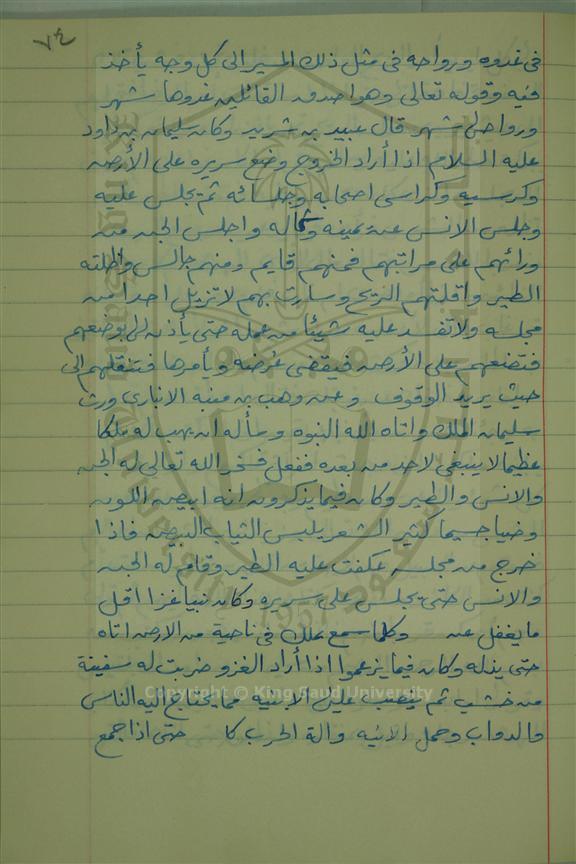 ٧٤
فى غدوه ورواحه فى مثل ذلك المسير الى كل وجه يأخذ
فيه وقوله تعالى وهو اصدق القائلين غدوها شهر
ورواحها شهر قال عبيد بن شريه وكان سليمان بن داود
عليه السلام اذا أراد الخروج وضع سريره على الأرض
وكرسيه وكراسى اصحابه وجلسائه ثم يجلس عليه
وجلس الانس عن يمينه وشماله واجلس الجن من
ورائهم على مراتبهم فمنهم قايم ومنهم جالس واظلته
الطير واقلتهم الريح وسارت بهم لا تزيل احدا من
مجلسه ولا تفسد عليه شيئا من عمله حتى يأذن لها بوضعهم
فتضعهم على الأرض فيقضى غرضه ويأمرها فتنقلهم الى
حيث يريد الوقوف وعن وهب بن منبه الانبارى ورث
سليمان الملك واتاه الله النبوه وسأله ان يهب له ملكا
عظيما لا ينبغى لاحد من بعده ففعل فسخر الله تعالى له الجن
والانس والطير وكان فيما يذكرون انه ابيض اللون
وضيا جسيما كثير الشعر يلبس الثياب البيض فاذا
خرج من مجلسه عكفت عليه الطير وقام له الجن
والانس حتى يجلس على سريره وكان نبيا غزا اقل
ما يغفل عن وكلما سمع بملك فى ناحية من الارض اتاه
حتى يذله وكان فيما يزعموا اذا أراد الغزو ضربت له سفينة
من خشب ثم ينصب عليها الابنيه مما يحتاج اليه الناس
والدواب وحمل الانيه والة الحرب كا حتى اذا جمع
Copyright © King Saud University